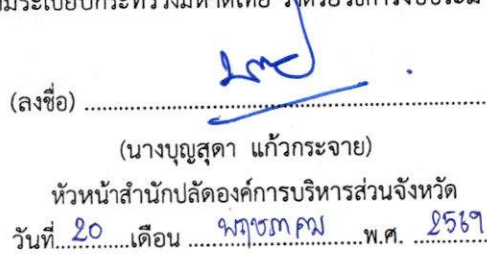 ระเบียบกระทรวงมหาดไทย ว่าด้วยวิธีการงบประมาณ
(ลงชื่อ) ........................................................
(นางบุญสุดา แก้วกระจาย)
หัวหน้าสำนักปลัดองค์การบริหารส่วนจังหวัด
วันที่...20......เดือน ......พฤษภาคม......พ.ศ. ...2569